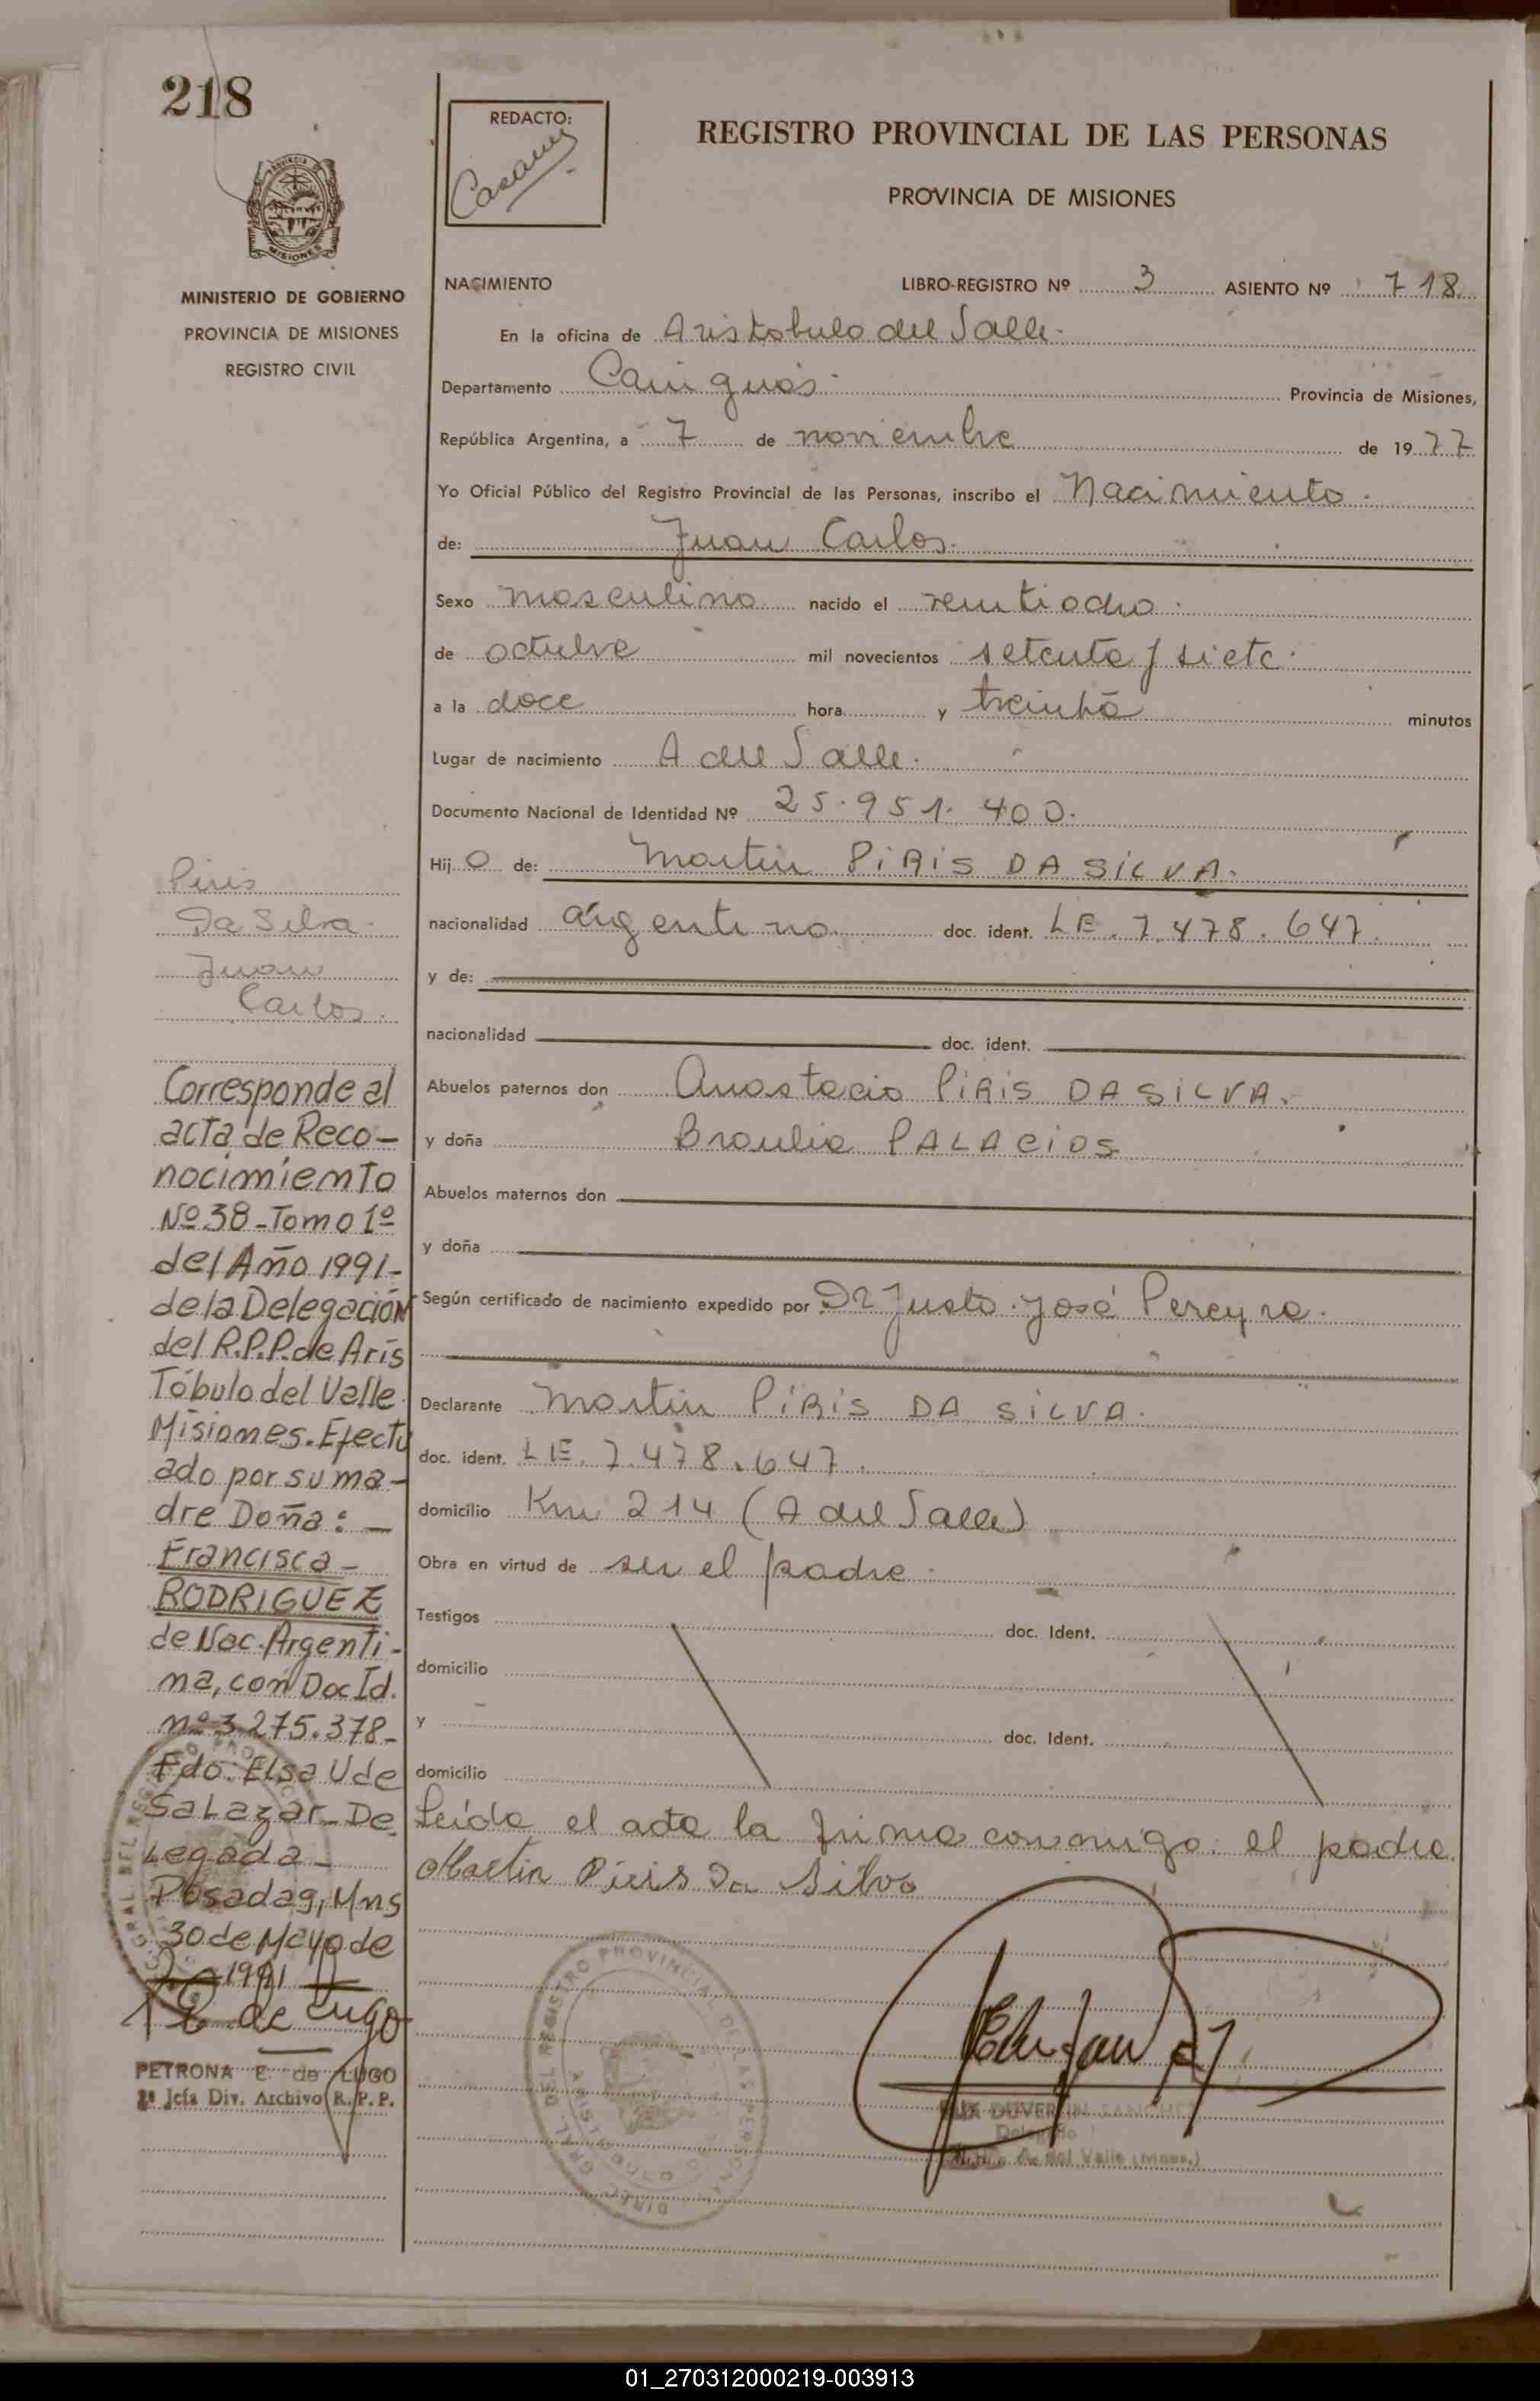 218
REDACTO:
REGISTRO PROVINCIAL DE LAS PERSONAS
PROVINCIA DE MISIONES
MINISTERIO DE GOBIERNO
PROVINCIA DE MISIONES
REGISTRO CIVIL
NACIMIENTO LIBRO-REGISTRO Nº 3 ASIENTO Nº 718
En la oficina de Aristobulo del Valle.
Departamento Cainguás Provincia de Misiones,
República Argentina, a 7 de noviembre de 1977
Yo Oficial Público del Registro Provincial de las Personas, inscribo el Nacimiento.
de: Juan Carlos.
Sexo masculino nacido el veintiocho.
de octubre mil novecientos setenta y siete.
a la doce hora y treinta minutos
Lugar de nacimiento A del Valle.
Documento Nacional de Identidad Nº 25.951.400.
Hij o de: Martin PIRIS DA SILVA.
nacionalidad argentino doc. ident. LE. 7.478.647.
y de:
nacionalidad doc. ident.
Abuelos paternos don Anastacio PIRIS DA SILVA.
y doña Braulia PALACIOS
Abuelos maternos don
y doña
Según certificado de nacimiento expedido por Dr Justo José Pereyra.
Declarante Martin PIRIS DA SILVA.
doc. ident. LE. 7.478.647.
domicilio Km 214 (A del Valle)
Obra en virtud de ser el padre.
Testigos doc. Ident.
domicilio
y doc. Ident.
domicilio
Leída el acta la firma conmigo el padre.
Martin Piris Da Silva
Piris
Da Silva.
Juan
Carlos.
Corresponde al
acta de Reco-
nocimiento
Nº 38-Tomo 1º
del Año 1991-
de la Delegación
del R.P.P. de Arís
Tóbulo del Valle
Misiones. Efectu
ado por su ma-
dre Doña: -
Francisca-
RODRIGUEZ
de Nac. Argenti-
na, con Doc Id.
nº 3.275.378-
Fdo: Elsa U de
Salazar-De
Legada-
Posadas, Mns
30 de Mayo de
1991
PETRONA E. de LUGO
2ª Jefa Div. Archivo R. P. P.
DUVER SANCHEZ
Delegado
A. del Valle (Mnes.)
01_270312000219-003913